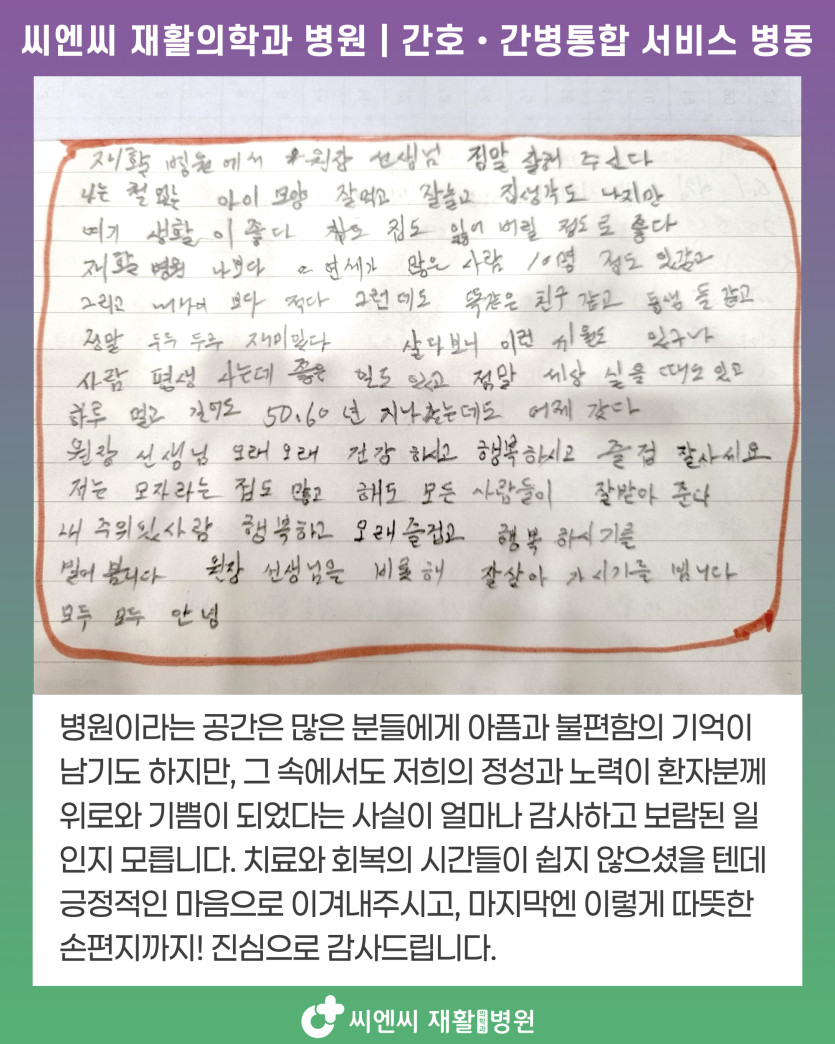 씨엔씨 재활의학과 병원 | 간호・간병통합 서비스 병동
재활 병원에서 원장 선생님 정말 잘해 주신다
나는 철 없는 아이 모양 잘먹고 잘놀고 집생각도 나지만
여기 생활이 좋다 집도 잃어 버릴 정도로 좋다
재활 병원 나보다 연세가 많은 사람 10명 정도 있갔고
그리고 보다 적다 그런데도 똑같은 친구 같고 동생 들 같고
정말 두루 두루 재미있다 살다보니 이런 있구나
사람 평생 사는데 좋은 일도 있고 정말 세상 싫을 때도 있고
하루 멀고 길어도 50.60년 지나 갔는데도 어제 갔다
원장 선생님 오래오래 건강 하시고 행복하시고 즐겁 잘사세요
저는 모자라는 점도 많고 해도 모든 사람들이 잘받아 준다
내 주위 사람 행복하고 오래즐겁고 행복 하시기를
빌어 봅니다 원장 선생님을 비롯해 잘살아 가시기를 빕니다
모두 모두 안녕
병원이라는 공간은 많은 분들에게 아픔과 불편함의 기억이
남기도 하지만, 그 속에서도 저희의 정성과 노력이 환자분께
위로와 기쁨이 되었다는 사실이 얼마나 감사하고 보람된 일
인지 모릅니다. 치료와 회복의 시간들이 쉽지 않으셨을 텐데
긍정적인 마음으로 이겨내주시고, 마지막엔 이렇게 따뜻한
손편지까지! 진심으로 감사드립니다.
씨엔씨 재활의학과병원